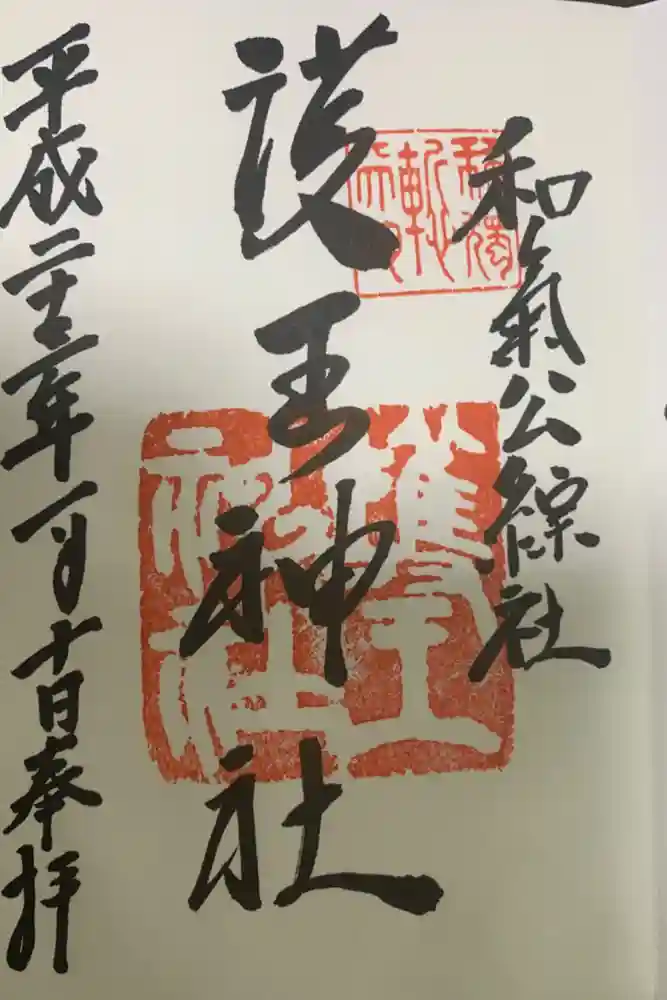 和氣公綜社
護王神社
平成二十三年一月十日奉拝
護王神社